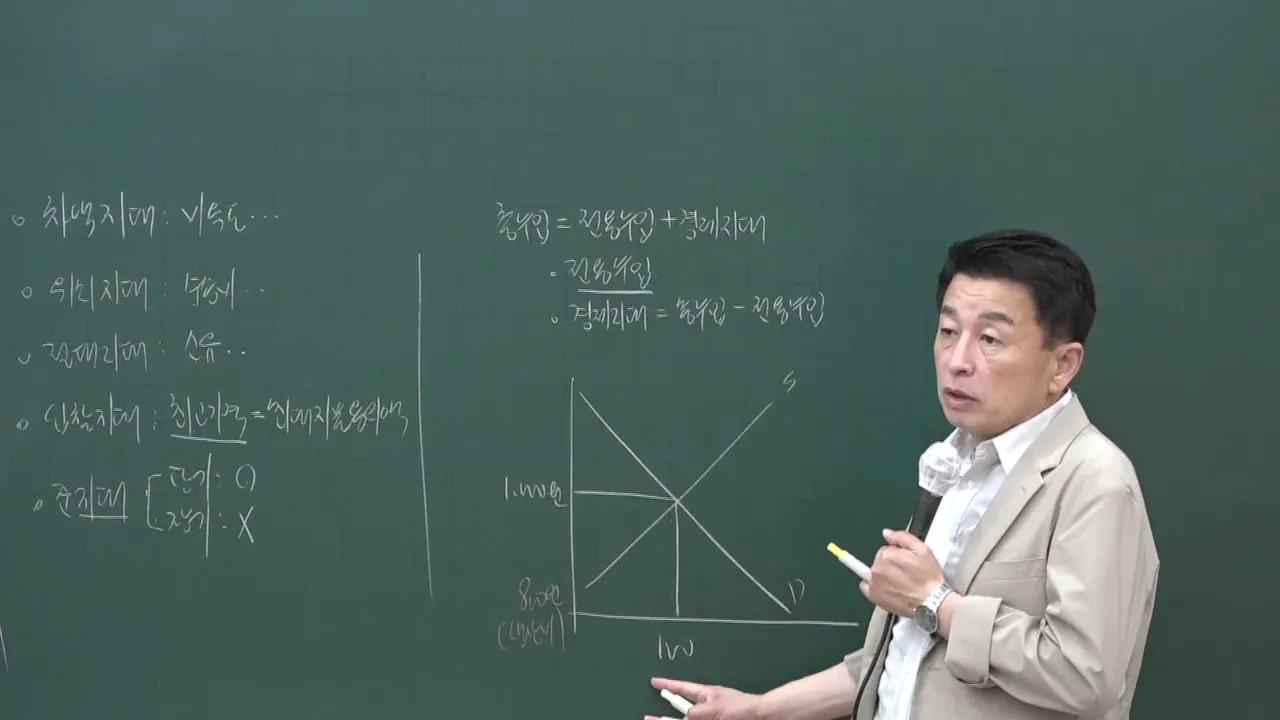 차액지대 : 비옥도...
위치지대 : 수송비..
절대지대 : 소유..
입찰지대 : 최고가격 = 최대지불용의액
준지대
단기 : O
장기 : X
총수입 = 전용수입 + 경제지대
전용수입
경제지대 = 총수입 - 전용수입
S
1,000원
800원
(생산비)
D
100